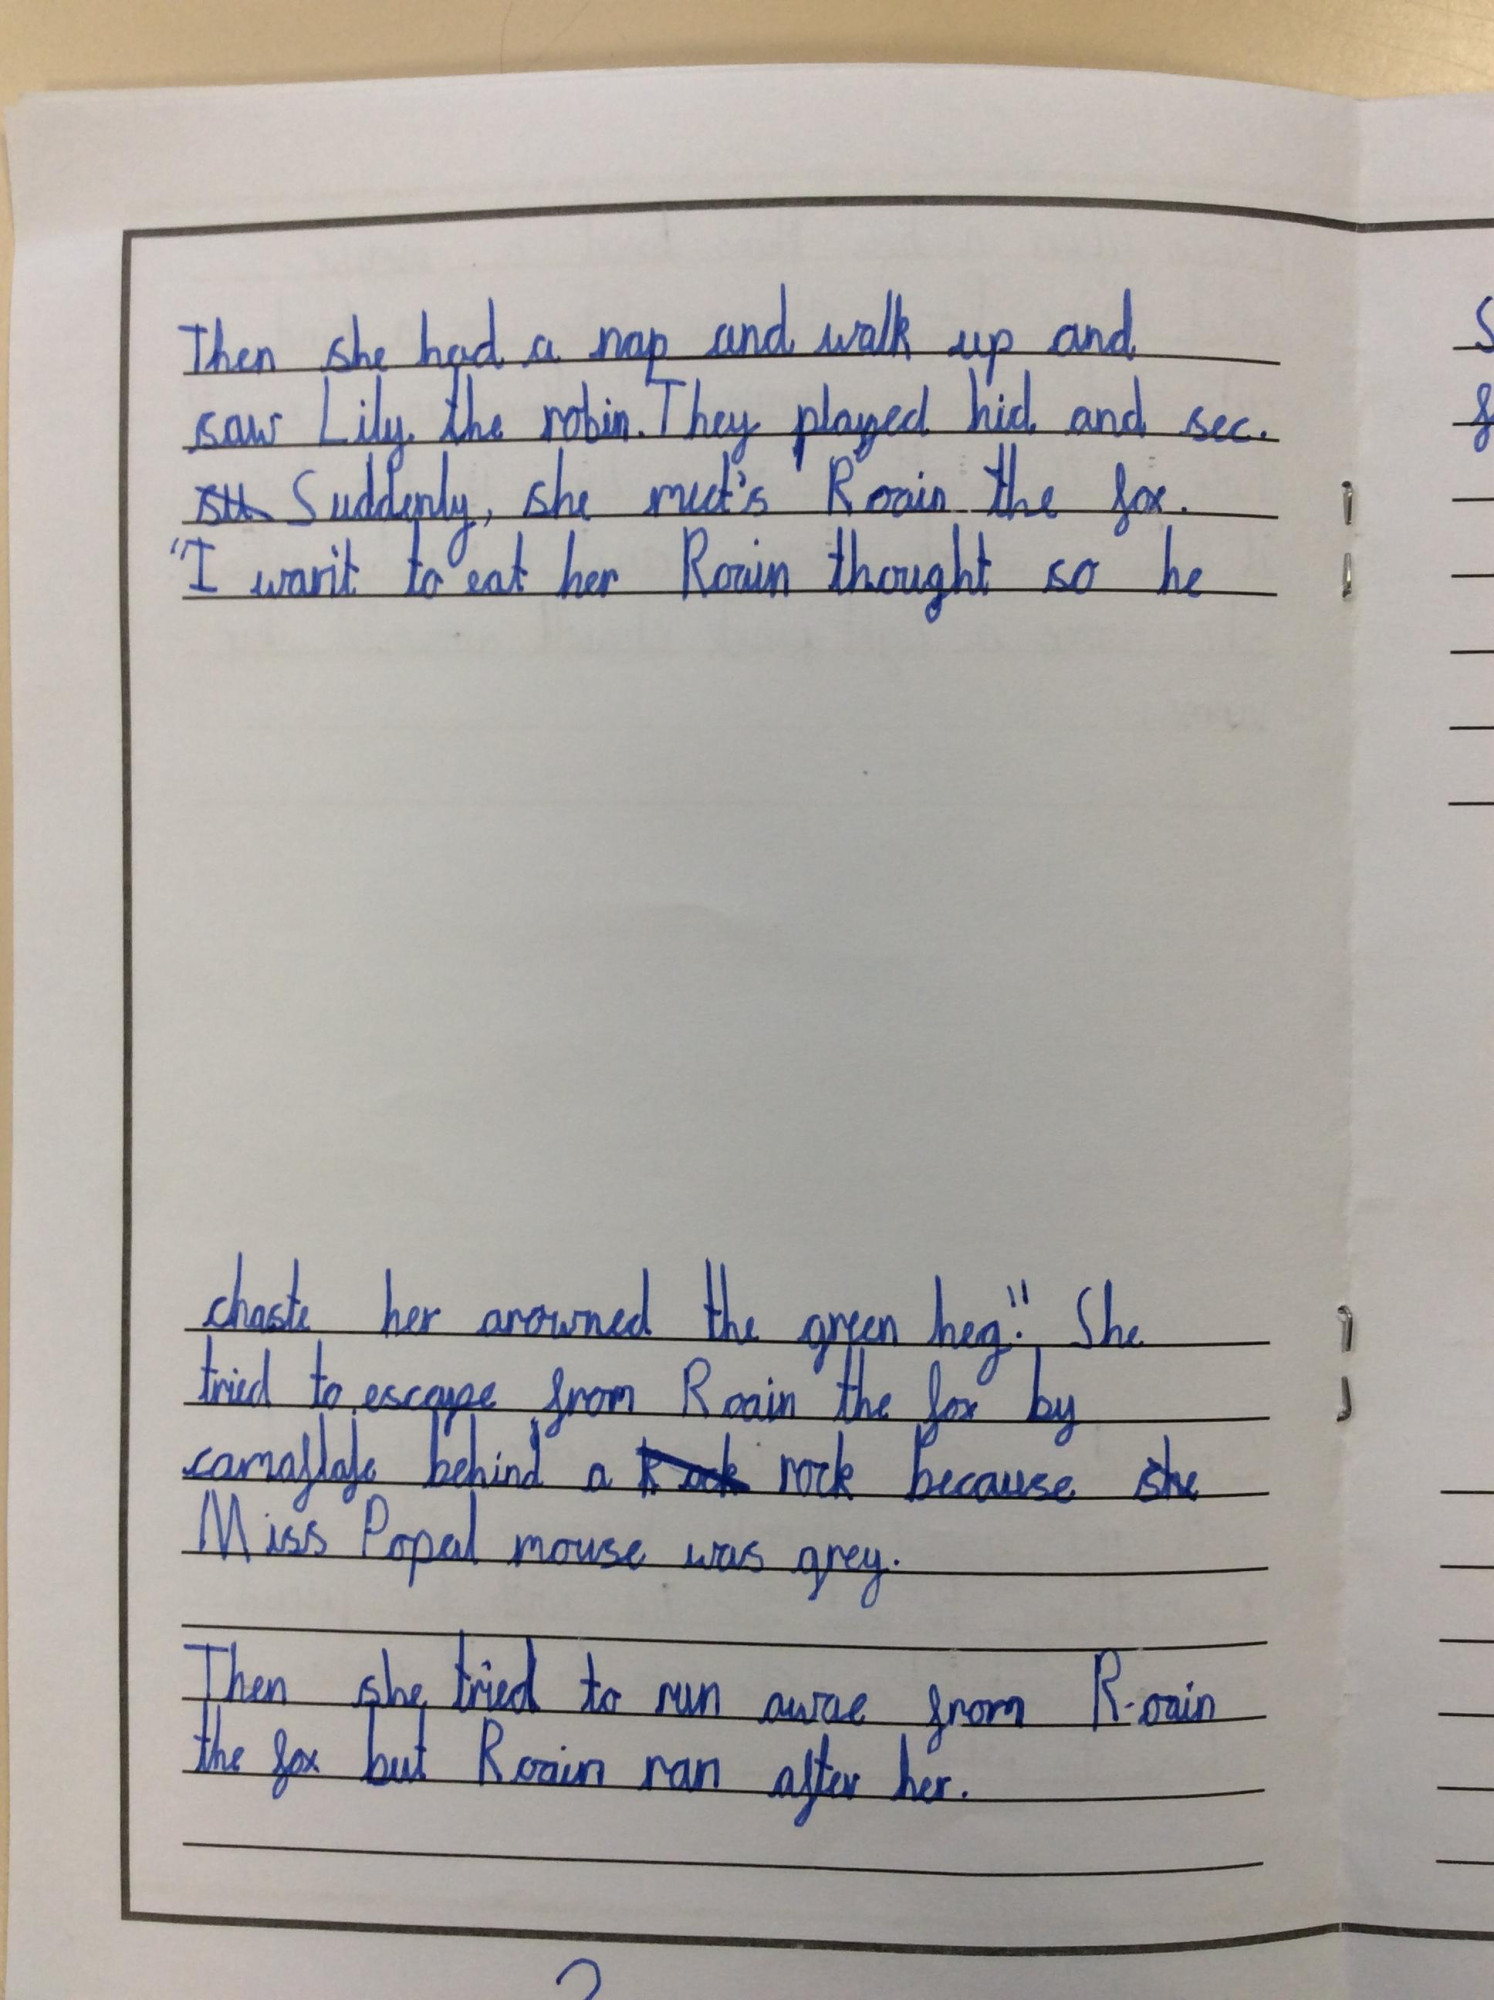 Then she had a nap and walk up and
saw Lily the robin. They played hid and sec.
Suddenly, she meet's Roain the fox.
"I want to eat her Roain thought so he
chaste her arowned the green heg." She
tried to escape from Roain the fox by
camaflafe behind a rock because she
Miss Popal mouse was grey.
Then she tried to run awae from Roain
the fox but Roain ran after her.
S
f